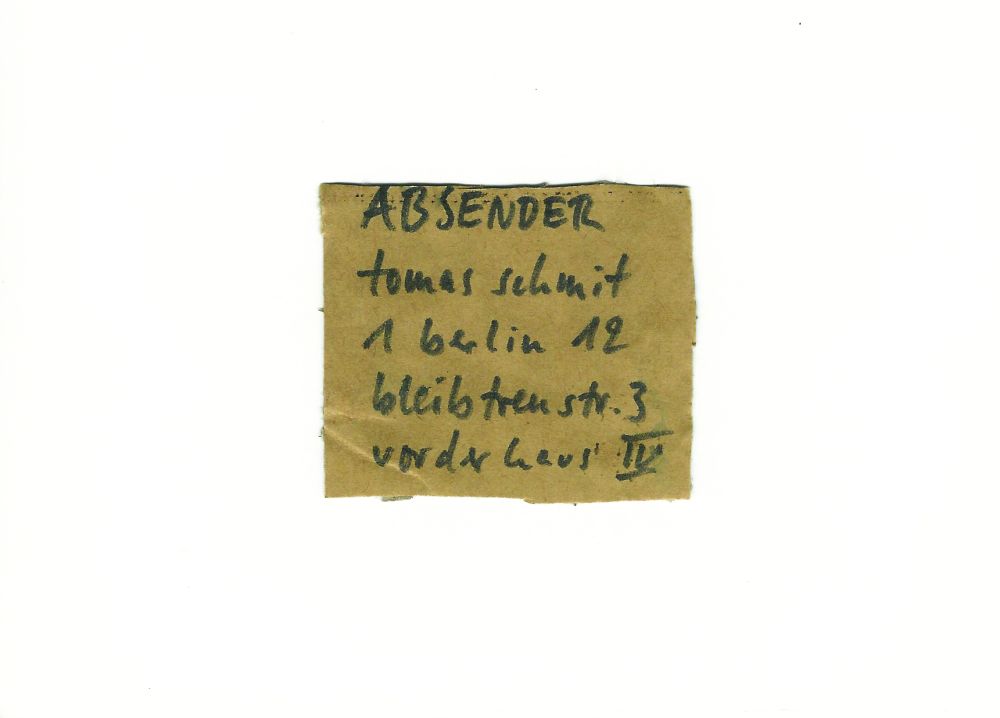 ABSENDER
tomas schmit
1 berlin 12
bleibtreustr. 3
vorderhaus IV